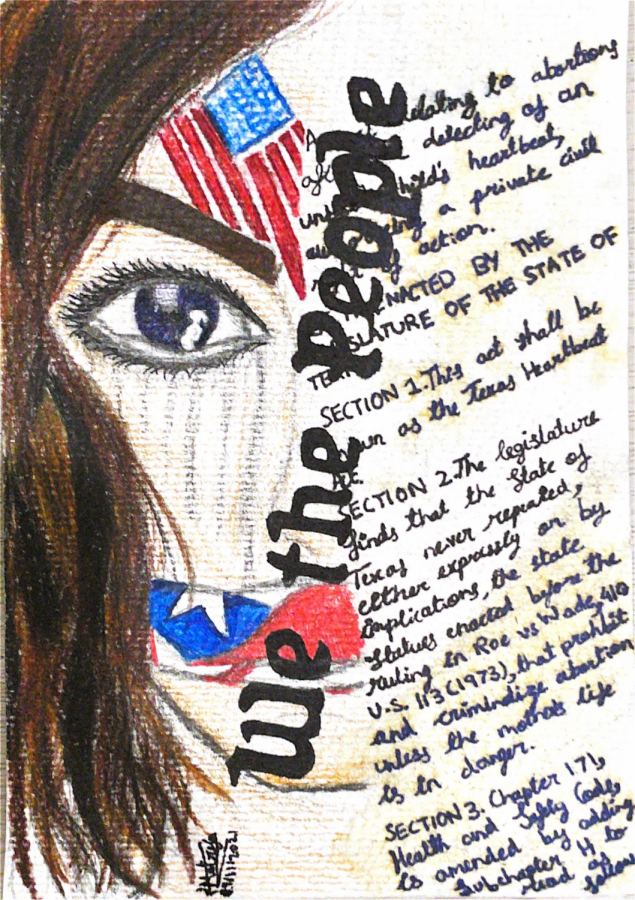 We the People
relating to abortions
detecting of an
child's heartbeat,
a private civil
action.
ENACTED BY THE
LEGISLATURE OF THE STATE OF
SECTION 1. This act shall be
as the Texas Heartbeat
SECTION 2. The legislature
finds that the State of
Texas never repeated,
either expressly or by
implications, the state
statues enacted before the
ruling in Roe vs Wade, 410
U.S. 113 (1973), that prohibit
and criminalize abortion
unless the mother's life
is in danger.
SECTION 3. Chapter 171,
Health and Safety Code,
is amended by adding
Subchapter H to
read as
follows